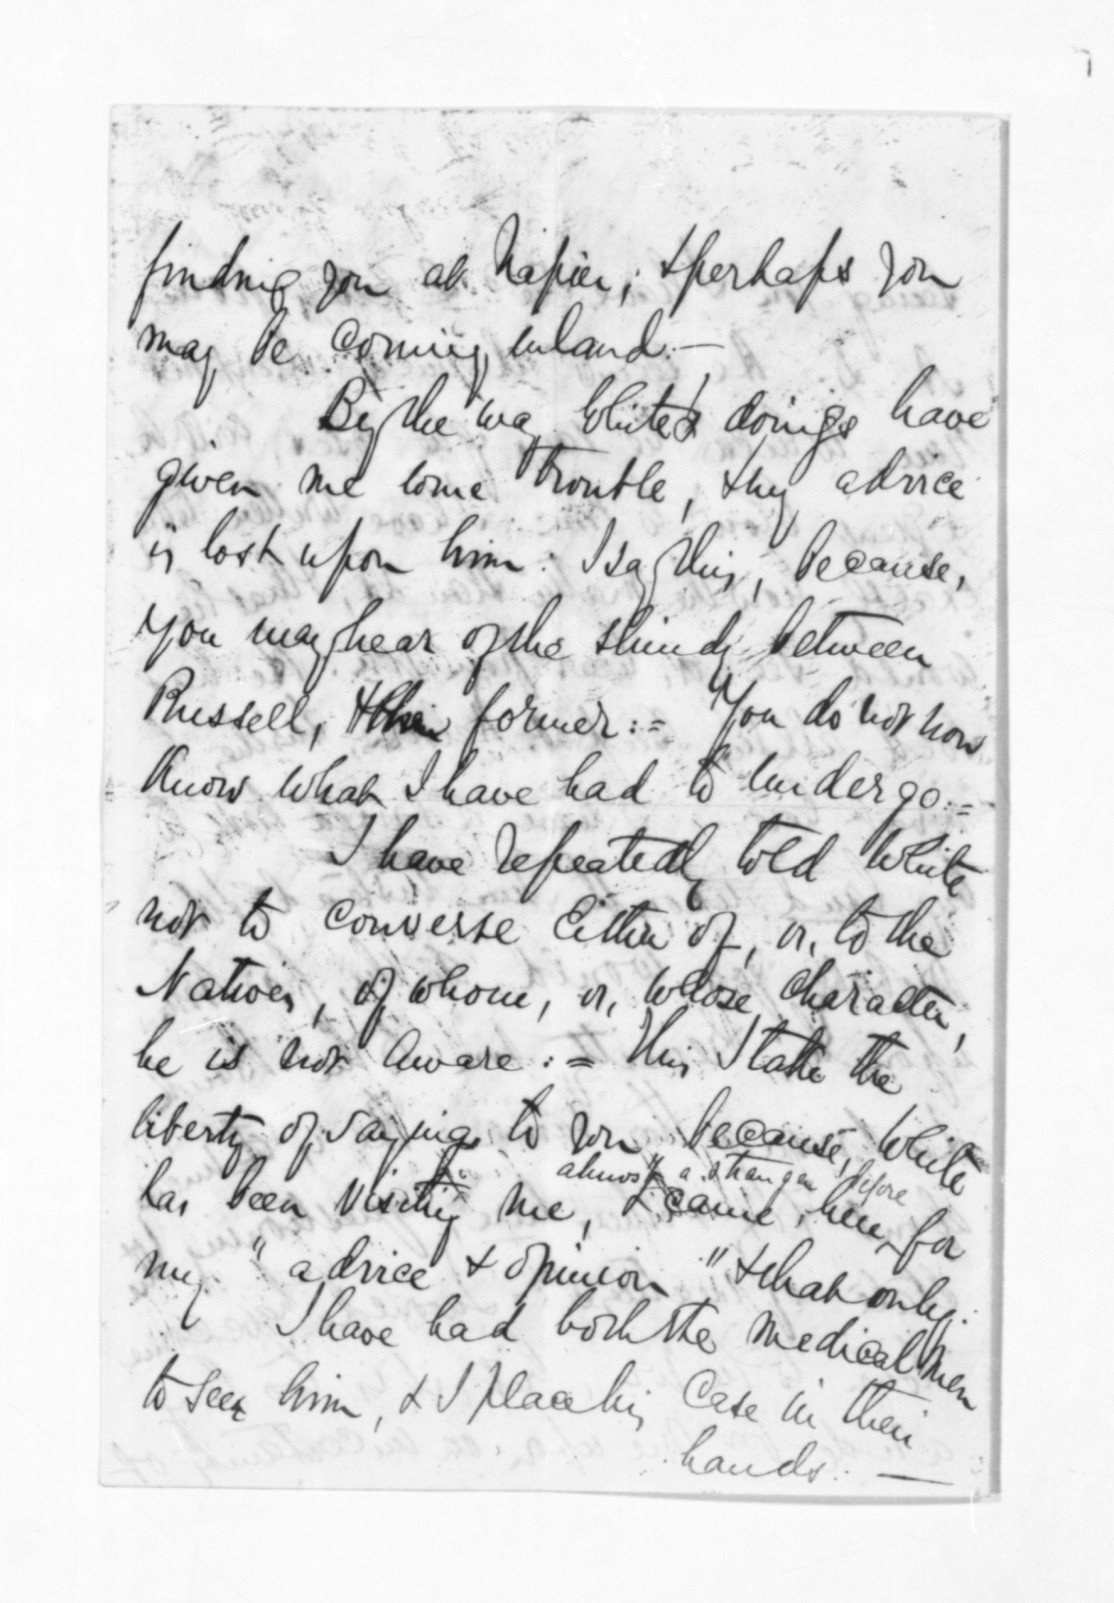 finding you at Napier; & perhaps you
may be coming inland. —
By the way White's doings have
given me some trouble, & my advice
is lost upon him: I say this, because,
you may hear of the shindy between
Russell, & the former: = You do not now
know what I have had to undergo. =
I have repeatedly told White
not to converse either of, or, to the
Natives, of whom, or, whose character,
he is not aware: = This I take the
liberty of saying to you because, White
almost a stranger before
has been visiting me, I came here, for
my "advice & opinion" & that only.
I have had both the medical men
to see him, & I place his case in their
hands. —